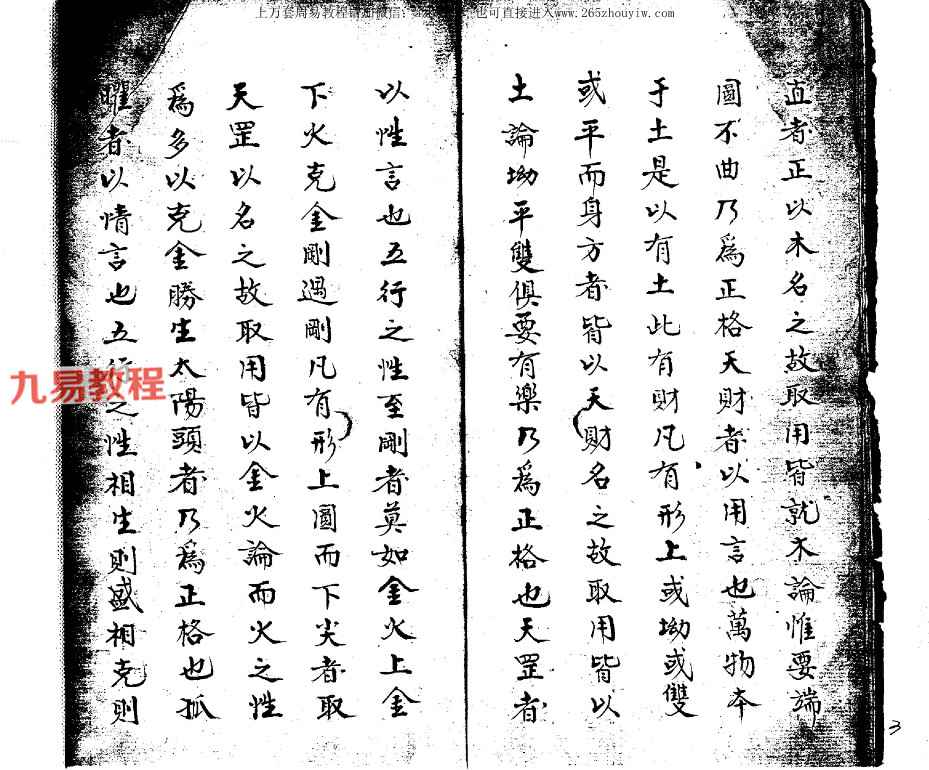 上万套周易教程请加微信: 也可直接进入www.265zhouyiw.com
直者正以木名之故取用皆就木論惟要端
圓不曲乃爲正格天財者以用言也萬物本
于土是以有土此有財凡有形上或坳或雙
或平而身方者皆以天財名之故取用皆以
土論坳平雙俱要有樂乃爲正格也天罡者
以性言也五行之性至剛者莫如金火上金
下火克金剛遇剛凡有形上圓而下尖者取
天罡以名之故取用皆以金火論而火之性
爲多以克金勝生太陽頭者乃爲正格也孤
曜者以情言也五行之性相生則盛相克則
九易教程
3